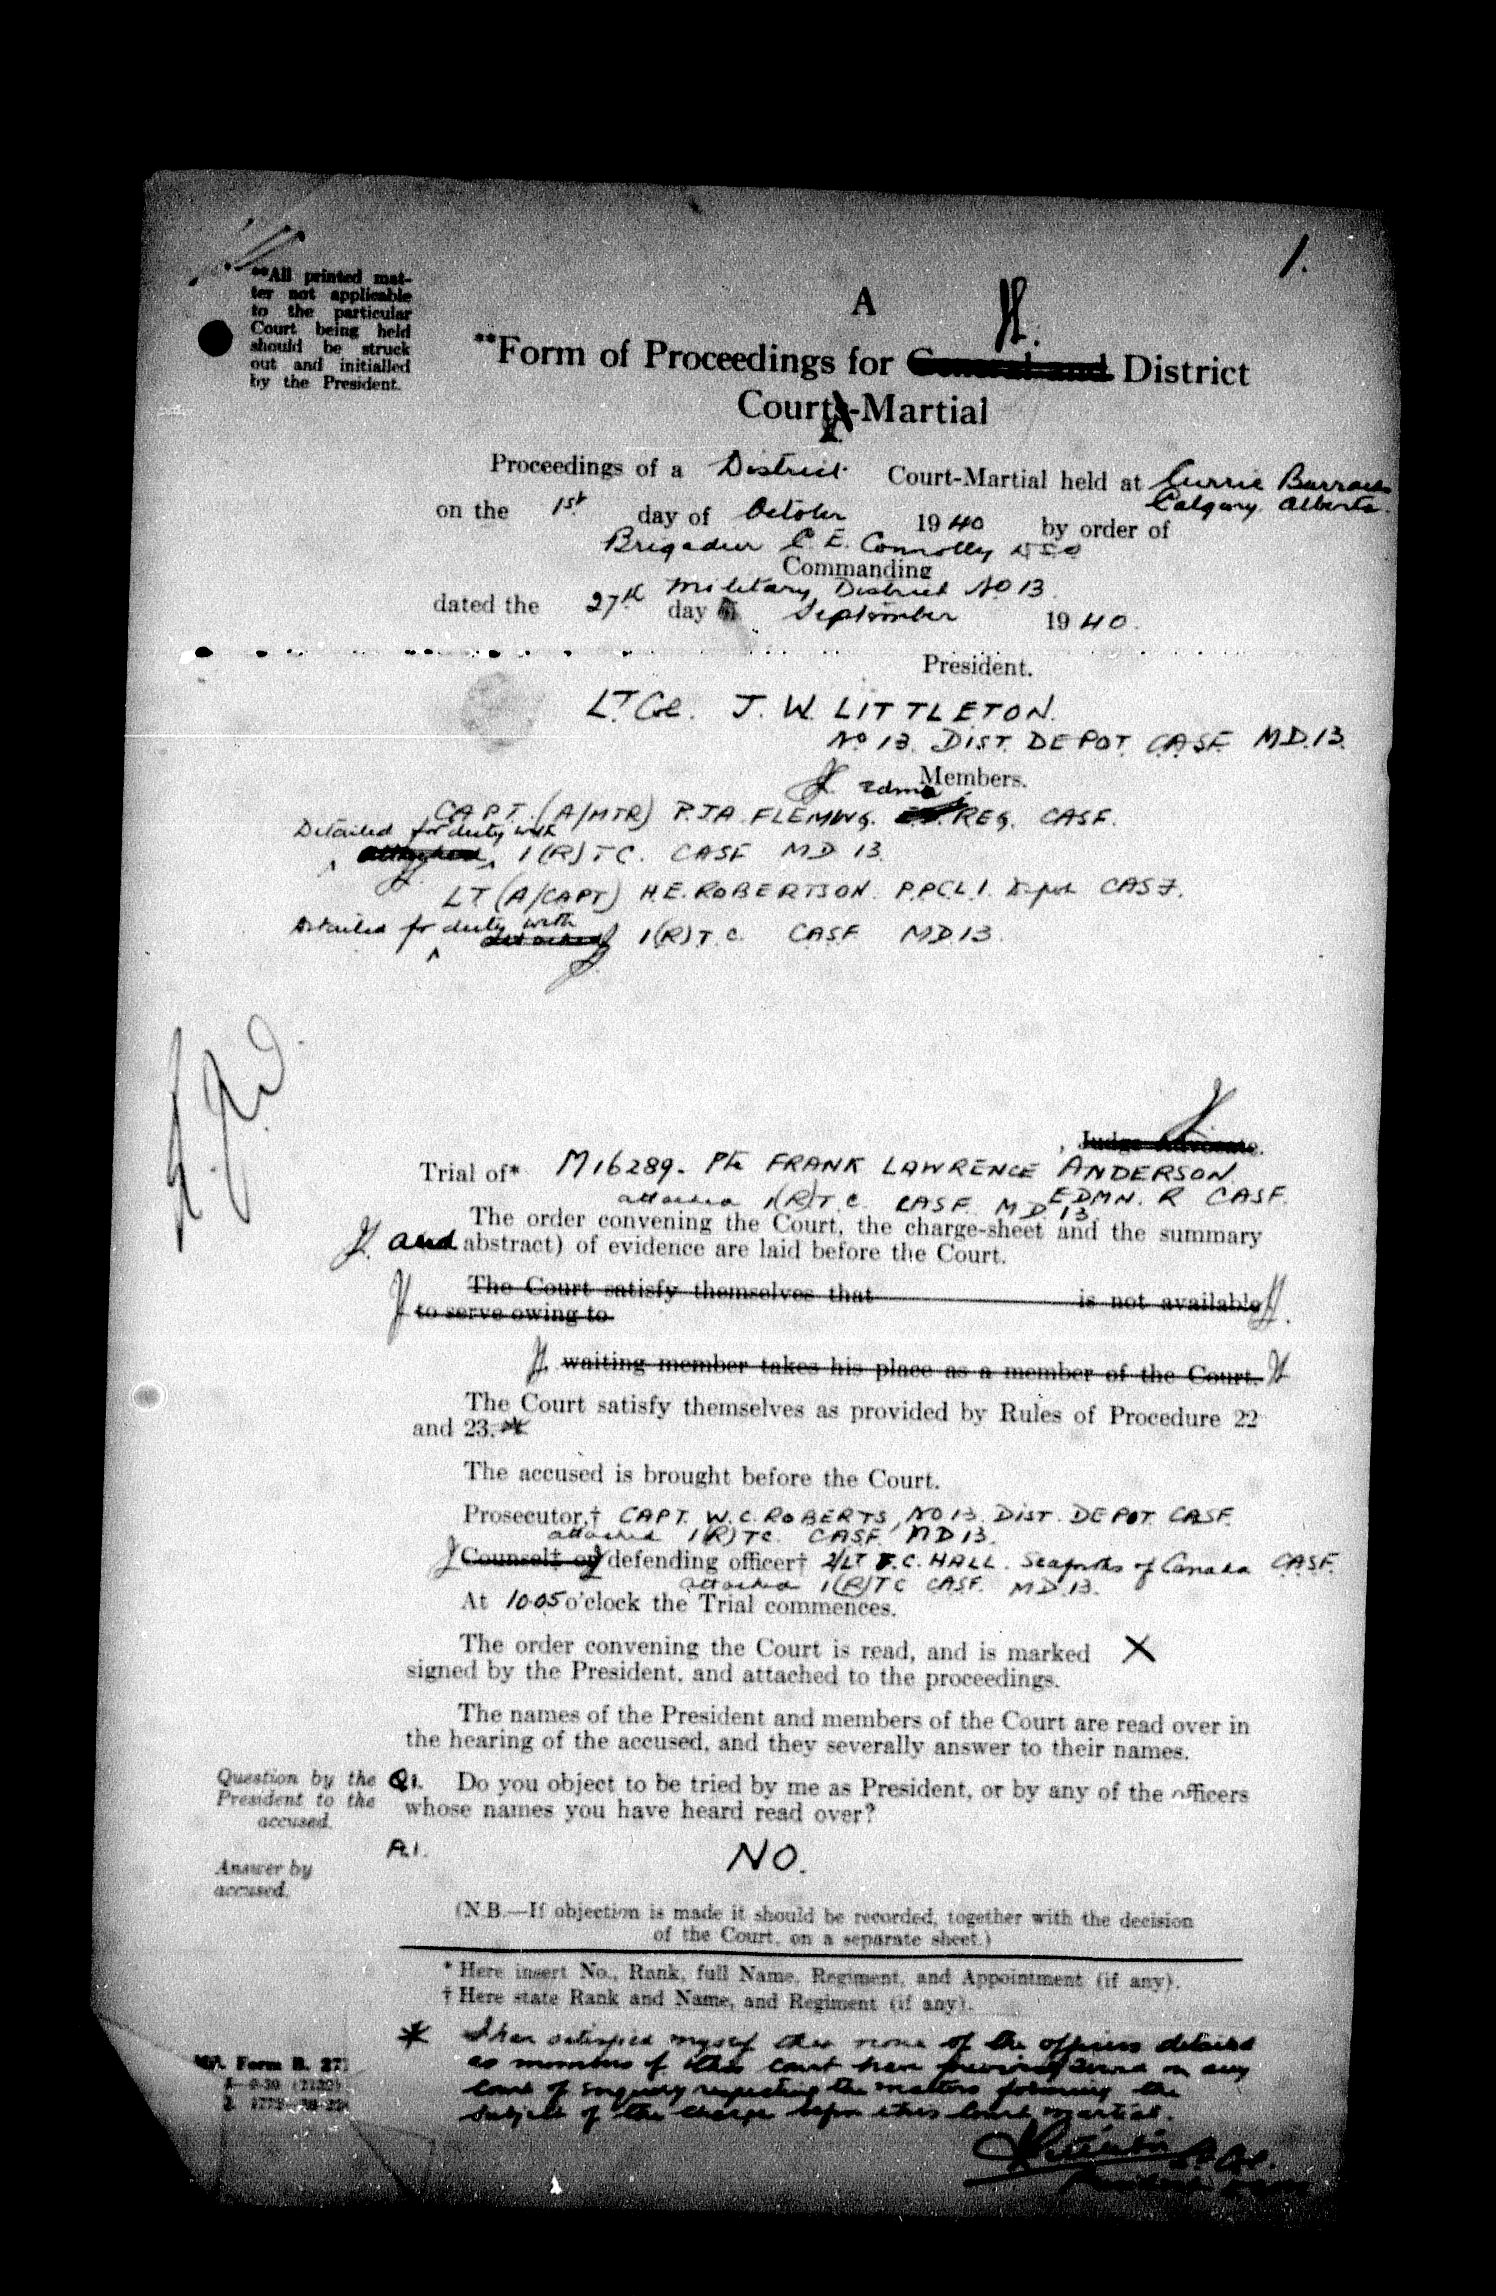 1.
**All printed mat-
ter not applicable
to the particular
Court being held
should be struck
out and initialled
by the President.
A
**Form of Proceedings for General and District
Courts-Martial
Proceedings of a District Court-Martial held at Currie Barracks
Calgary. Alberta.
on the 1st day of October 1940 by order of
Brigadier C. E. Connolly DSO
Commanding
Military District No 13.
dated the 27th day of September 1940.
President.
LT Col. J. W. LITTLETON.
No 13. DIST. DEPOT. CASF. MD.13.
Members.
Edmn
CAPT. (A/MJR) P.J.A. FLEMING. REG. CASF.
Detailed for duty with
attached 1(R)TC. CASF MD 13.
LT (A/CAPT) H.E. ROBERTSON. P.P.C.L.I. Depot CASF.
Detailed for duty with
attached 1(R)T.C. CASF MD.13.
Judge-Advocate.
Trial of* M16289. Pte FRANK LAWRENCE ANDERSON
EDMN. R CASF.
attached 1(R)T.C. CASF. MD 13
The order convening the Court, the charge-sheet and the summary
and abstract) of evidence are laid before the Court.
The Court satisfy themselves that is not available
to serve owing to
waiting member takes his place as a member of the Court.
The Court satisfy themselves as provided by Rules of Procedure 22
and 23.*
The accused is brought before the Court.
Prosecutor,† CAPT. W.C. ROBERTS, NO 13. DIST. DEPOT. CASF.
attached 1(R)TC. CASF. MD 13.
Counsel‡ or defending officer† 2/LT F.C. HALL. Seaforths of Canada CASF.
attached 1(R)TC CASF. MD.13.
At 10.05 o'clock the Trial commences.
The order convening the Court is read, and is marked X
signed by the President, and attached to the proceedings.
The names of the President and members of the Court are read over in
the hearing of the accused, and they severally answer to their names.
Question by the
President to the
accused.
Q1. Do you object to be tried by me as President, or by any of the officers
whose names you have heard read over?
Answer by
accused.
A.1. NO.
(N.B.—If objection is made it should be recorded, together with the decision
of the Court, on a separate sheet.)
* Here insert No., Rank, full Name, Regiment, and Appointment (if any).
† Here state Rank and Name, and Regiment (if any).
* I have satisfied myself that none of the officers detailed
as members of this court have previously served on any
Court of Enquiry respecting the matters forming the
subject of the charge before this Court Martial.
Lt Col.
President
Form B. 27